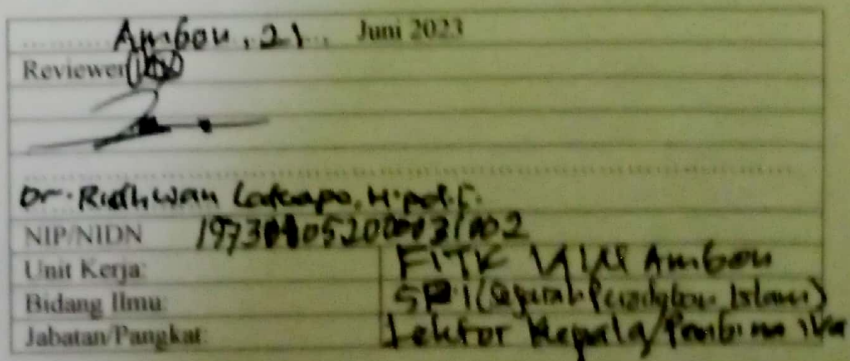 Ambon, 21 Juni 2023
Reviewer
Dr. Ridhwan Latuapo, M.Pd.I.
NIP/NIDN
Unit Kerja: FITK IAIN Ambon
Bidang Ilmu: SPI (Sejarah Pendidikan Islam)
Jabatan/Pangkat: Lektor Kepala/Pembina IV/a